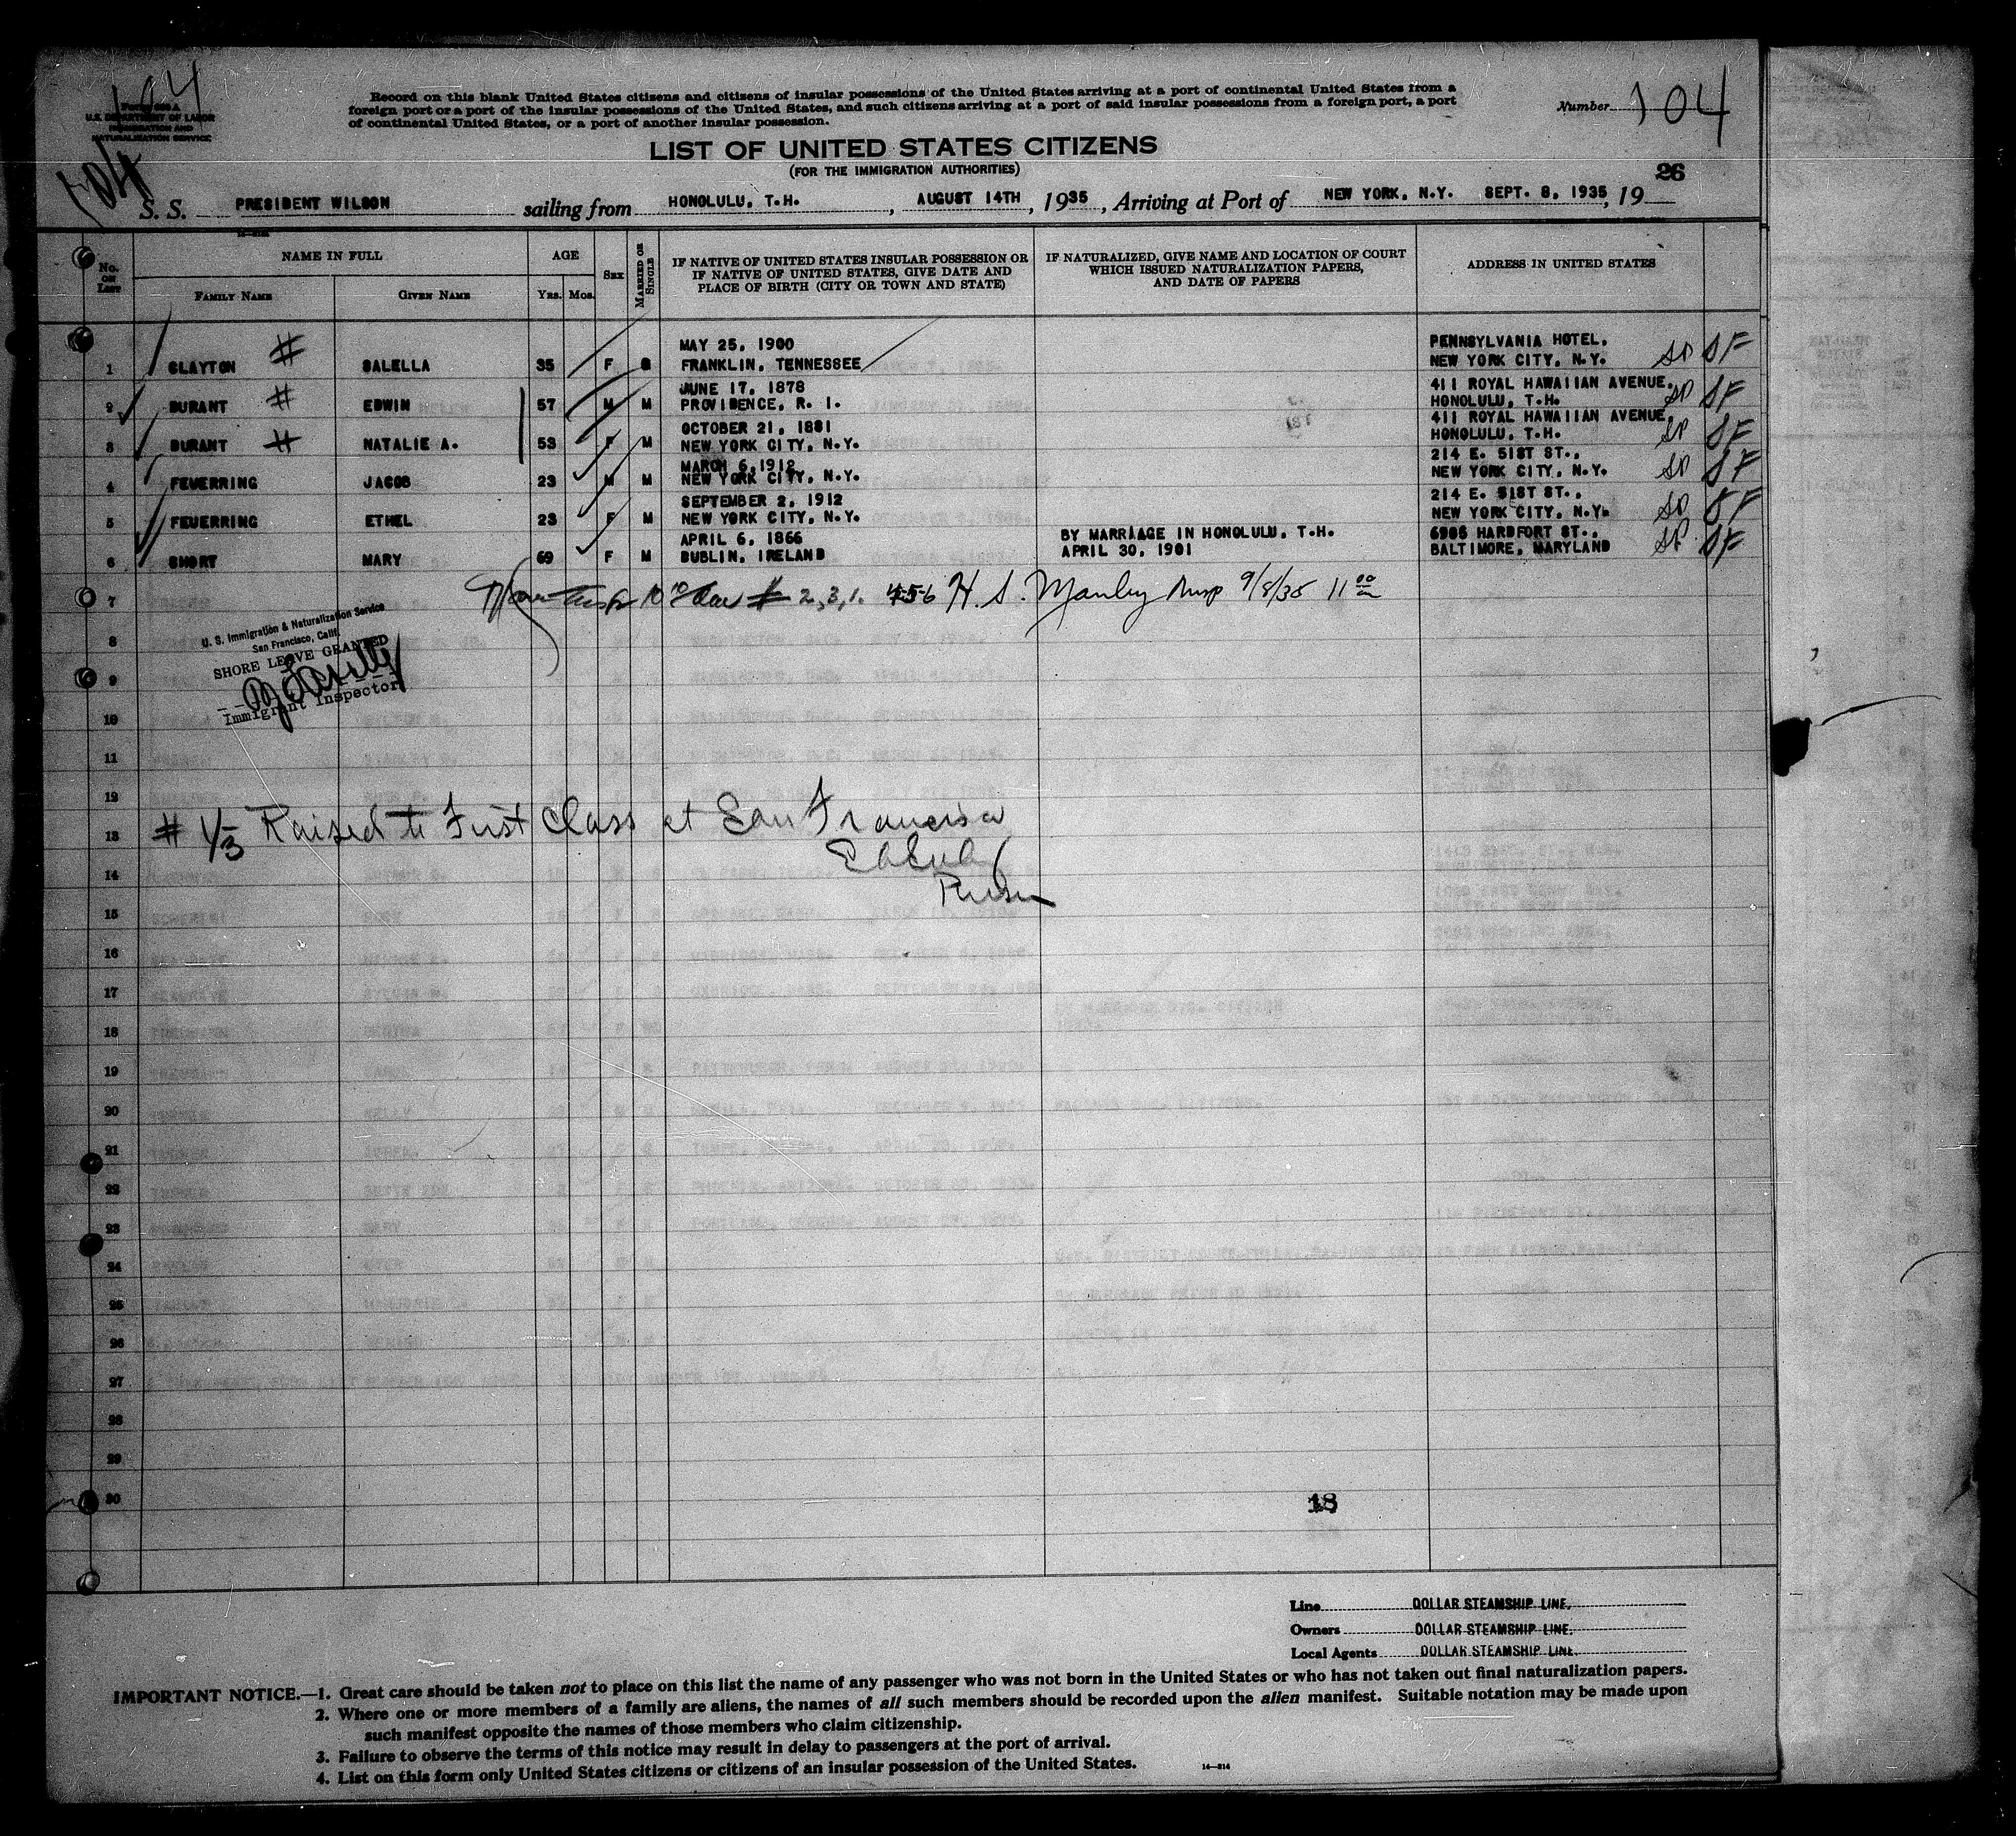 104
Form 630 A
U.S. DEPARTMENT OF LABOR
IMMIGRATION AND
NATURALIZATION SERVICE
104
Record on this blank United States citizens and citizens of insular possessions of the United States arriving at a port of continental United States from a
foreign port or a port of the insular possessions of the United States, and such citizens arriving at a port of said insular possessions from a foreign port, a port
of continental United States, or a port of another insular possession.
Number 104
LIST OF UNITED STATES CITIZENS
(FOR THE IMMIGRATION AUTHORITIES)
26
S. S. PRESIDENT WILSON sailing from HONOLULU, T.H. , AUGUST 14TH , 1935 , Arriving at Port of NEW YORK, N.Y. SEPT. 8, 1935, 19
No. on List
NAME IN FULL
FAMILY NAME GIVEN NAME
AGE
YRS. MOS.
SEX
MARRIED OR SINGLE
IF NATIVE OF UNITED STATES INSULAR POSSESSION OR
IF NATIVE OF UNITED STATES, GIVE DATE AND
PLACE OF BIRTH (CITY OR TOWN AND STATE)
IF NATURALIZED, GIVE NAME AND LOCATION OF COURT
WHICH ISSUED NATURALIZATION PAPERS,
AND DATE OF PAPERS
ADDRESS IN UNITED STATES
MAY 25, 1900 PENNSYLVANIA HOTEL,
1 CLAYTON # SALELLA 35 F S FRANKLIN, TENNESSEE NEW YORK CITY, N.Y. SD SF
JUNE 17, 1878 411 ROYAL HAWAIIAN AVENUE,
2 DURANT # EDWIN 57 M M PROVIDENCE, R. I. HONOLULU, T.H. SD SF
OCTOBER 21, 1881 411 ROYAL HAWAIIAN AVENUE,
3 DURANT # NATALIE A. 53 F M NEW YORK CITY, N.Y. HONOLULU, T.H. SD SF
MARCH 6, 1912 214 E. 51ST ST.,
4 FEUERRING JACOB 23 M M NEW YORK CITY, N.Y. NEW YORK CITY, N.Y. SD SF
SEPTEMBER 2, 1912 214 E. 51ST ST.,
5 FEUERRING ETHEL 23 F M NEW YORK CITY, N.Y. NEW YORK CITY, N.Y. SD SF
APRIL 6, 1866 BY MARRIAGE IN HONOLULU, T.H. 6905 HARDFORT ST.,
6 SHORT MARY 69 F M DUBLIN, IRELAND APRIL 30, 1901 BALTIMORE, MARYLAND SD SF
7 2, 3, 1. 4-5-6 H. S. Manley Insp 9/8/35 11 00
8
U. S. Immigration & Naturalization Service
San Francisco, Calif.
SHORE LEAVE GRANTED
Immigrant Inspector
9
10
11
12
13 # 1/3 Raised to First Class at San Francisco
14
15
16
17
18
19
20
21
22
23
24
25
26
27
28
29
30
18
Line DOLLAR STEAMSHIP LINE.
Owners DOLLAR STEAMSHIP LINE.
Local Agents DOLLAR STEAMSHIP LINE.
IMPORTANT NOTICE.—1. Great care should be taken not to place on this list the name of any passenger who was not born in the United States or who has not taken out final naturalization papers.
2. Where one or more members of a family are aliens, the names of all such members should be recorded upon the alien manifest. Suitable notation may be made upon
such manifest opposite the names of those members who claim citizenship.
3. Failure to observe the terms of this notice may result in delay to passengers at the port of arrival.
4. List on this form only United States citizens or citizens of an insular possession of the United States.
14—814